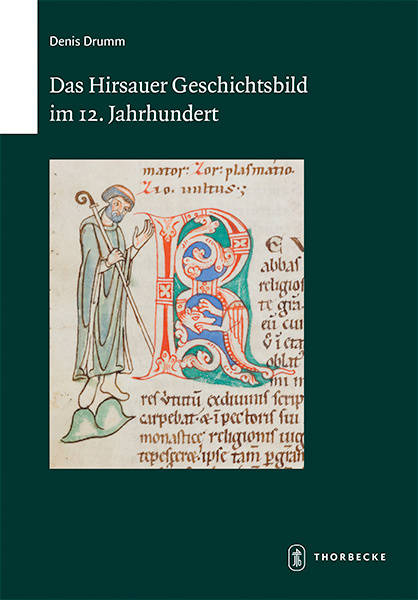 Denis Drumm
Das Hirsauer Geschichtsbild
im 12. Jahrhundert
mator: Zor: plasmatio
Zio. uultus:;
abbas
religios
te grā
eū cui
oblat
res ũtutũ
ex diuinis scrip
carpebat. & ī pectoris sui
monastice religionis iug
tepescere. ipse tam
THORBECKE